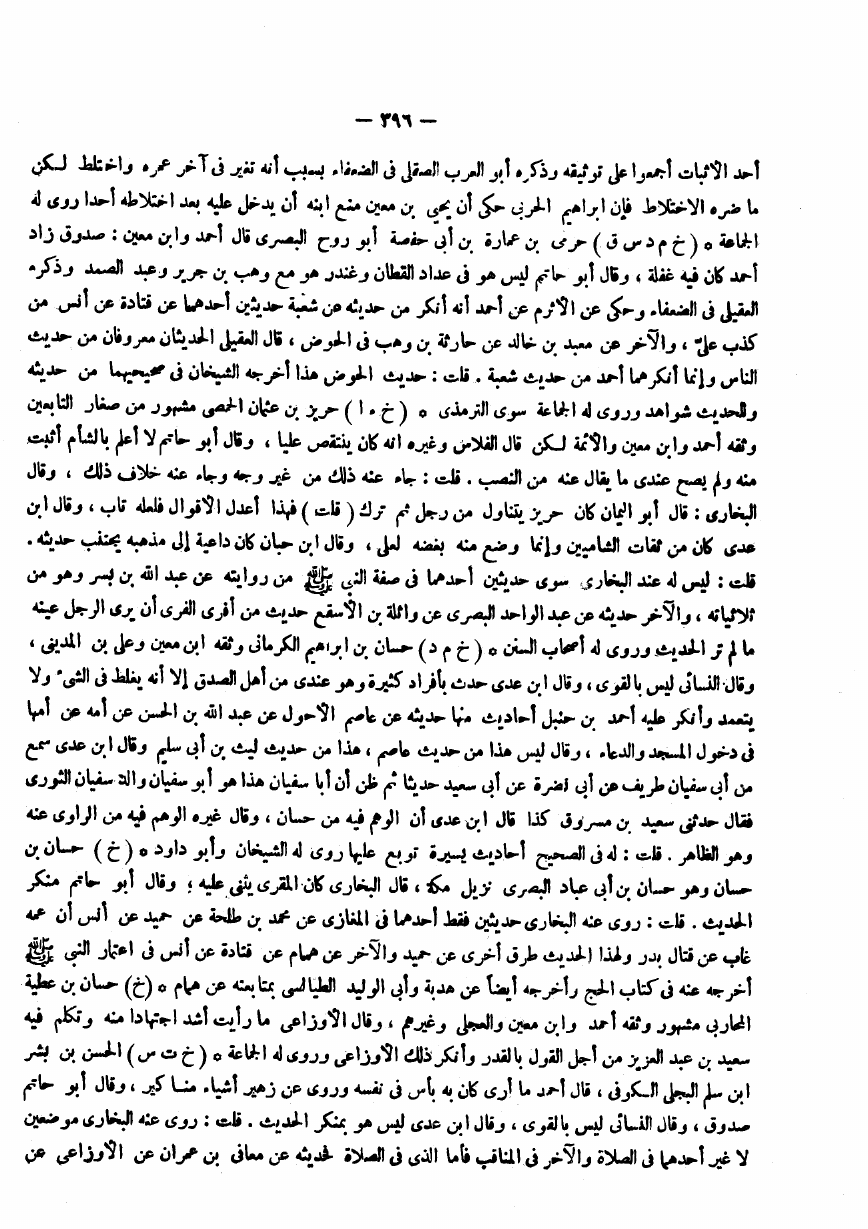 — ٣٩٦ —
أحد الأثبات أجمعوا على توثيقه وذكره أبو العرب الصقلى فى الضعفاء بسبب أنه تغير فى آخر عمره واختلط لكن
ما ضره الاختلاط فإن ابراهيم الحربى حكى أن يحيى بن معين منع ابنه أن يدخل عليه بعد اختلاطه أحدا روى له
الجماعة * ( خ م د س ق ) حرمى بن عمارة بن أبى حفصة أبو روح البصرى قال أحمد وابن معين : صدوق زاد
أحمد كان فيه غفلة ، وقال أبو حاتم ليس هو فى عداد القطان وغندر هو مع وهب بن جرير وعبد الصمد وذكره
العقيلى فى الضعفاء وحكى عن الأثرم عن أحمد أنه أنكر من حديثه عن شعبة حديثين أحدهما عن قتادة عن أنس من
كذب علىّ ، والآخر عن معبد بن خالد عن حارثة بن وهب فى الحوض ، قال العقيلى الحديثان معروفان من حديث
الناس وإنما أنكرهما أحمد من حديث شعبة . قلت : حديث الحوض هذا أخرجه الشيخان فى صحيحيهما من حديثه
وللحديث شواهد وروى له الجماعة سوى الترمذى * ( خ ٤ ا ) حريز بن عثمان الحمصى مشهور من صغار التابعين
وثقه أحمد وابن معين والأئمة لكن قال الفلاس وغيره انه كان ينتقص عليا ، وقال أبو حاتم لا أعلم بالشأم أثبت
منه ولم يصح عندى ما يقال عنه من النصب . قلت : جاء عنه ذلك من غير وجه وجاء عنه خلاف ذلك ، وقال
البخارى : قال أبو اليمان كان حريز يتناول من رجل ثم ترك ( قلت ) فهذا أعدل الأقوال فلعله تاب ، وقال ابن
عدى كان من ثقات الشاميين وإنما وضع منه بغضه لعلى ، وقال ابن حبان كان داعية إلى مذهبه يجتنب حديثه .
قلت : ليس له عند البخارى سوى حديثين أحدهما فى صفة النبى ﷺ من روايته عن عبد الله بن بسر وهو من
ثلاثياته ، والآخر حديثه عن عبد الواحد البصرى عن واثلة بن الأسقع حديث من أفرى الفرى أن يرى الرجل عينه
ما لم تر الحديث وروى له أصحاب السنن * ( خ م د ) حسان بن ابراهيم الكرمانى وثقه ابن معين وعلى بن المدينى ،
وقال النسائى ليس بالقوى ، وقال ابن عدى حدث بأفراد كثيرة وهو عندى من أهل الصدق إلا أنه يغلط فى الشىء ولا
يتعمد وأنكر عليه أحمد بن حنبل أحاديث منها حديثه عن عاصم الأحول عن عبد الله بن الحسن عن أمه عن أمها
فى دخول المسجد والدعاء ، وقال ليس هذا من حديث عاصم ، هذا من حديث ليث بن أبى سليم وقال ابن عدى سمع
من أبى سفيان طريف عن أبى نضرة عن أبى سعيد حديثا ثم ظن أن أبا سفيان هذا هو أبو سفيان والد سفيان الثورى
فقال حدثنى سعيد بن مسروق كذا قال ابن عدى أن الوهم فيه من حسان ، وقال غيره الوهم فيه من الراوى عنه
وهو الظاهر . قلت : له فى الصحيح أحاديث يسيرة توبع عليها روى له الشيخان وأبو داود * ( خ ) حسان بن
حسان وهو حسان بن أبى عباد البصرى نزيل مكة ، قال البخارى كان المقرى يثنى عليه ؛ وقال أبو حاتم منكر
الحديث . قلت : روى عنه البخارى حديثين فقط أحدهما فى المغازى عن محمد بن طلحة عن حميد عن أنس أن عمه
غاب عن قتال بدر ولهذا الحديث طرق أخرى عن حميد والآخر عن همام عن قتادة عن أنس فى اعتمار النبى ﷺ
أخرجه عنه فى كتاب الحج وأخرجه أيضاً عن هدبة وأبى الوليد الطيالسى بمتابعته عن همام * (خ) حسان بن عطية
المحاربى مشهور وثقه أحمد وابن معين والعجلى وغيرهم ، وقال الأوزاعى ما رأيت أشد اجتهادا منه وتكلم فيه
سعيد بن عبد العزيز من أجل القول بالقدر وأنكر ذلك الأوزاعى وروى له الجماعة * ( خ ت س ) الحسن بن بشر
ابن سلم البجلى الكوفى ، قال أحمد ما أرى كان به بأس فى نفسه وروى عن زهير أشياء مناكير ، وقال أبو حاتم
صدوق ، وقال النسائى ليس بالقوى ، وقال ابن عدى ليس هو بمنكر الحديث . قلت : روى عنه البخارى موضعين
لا غير أحدهما فى الصلاة والآخر فى المناقب فأما الذى فى الصلاة فحديثه عن معافى بن عمران عن الأوزاعى عن